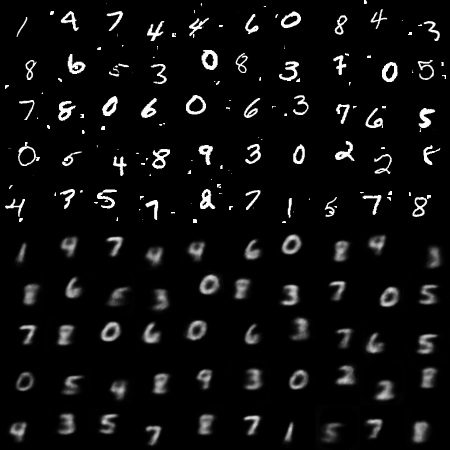 1 9 7 4 4 6 0 8 4 3
8 6 5 3 0 8 3 7 0 5
7 8 0 6 0 6 3 7 6 5
0 5 4 8 9 3 0 2 2 8
4 3 5 7 8 7 1 5 7 8
1 9 7 4 4 6 0 8 4 3
8 6 5 3 0 8 3 7 0 5
7 8 0 6 0 6 3 7 6 5
0 5 4 8 9 3 0 2 2 8
4 3 5 7 8 7 1 5 7 8